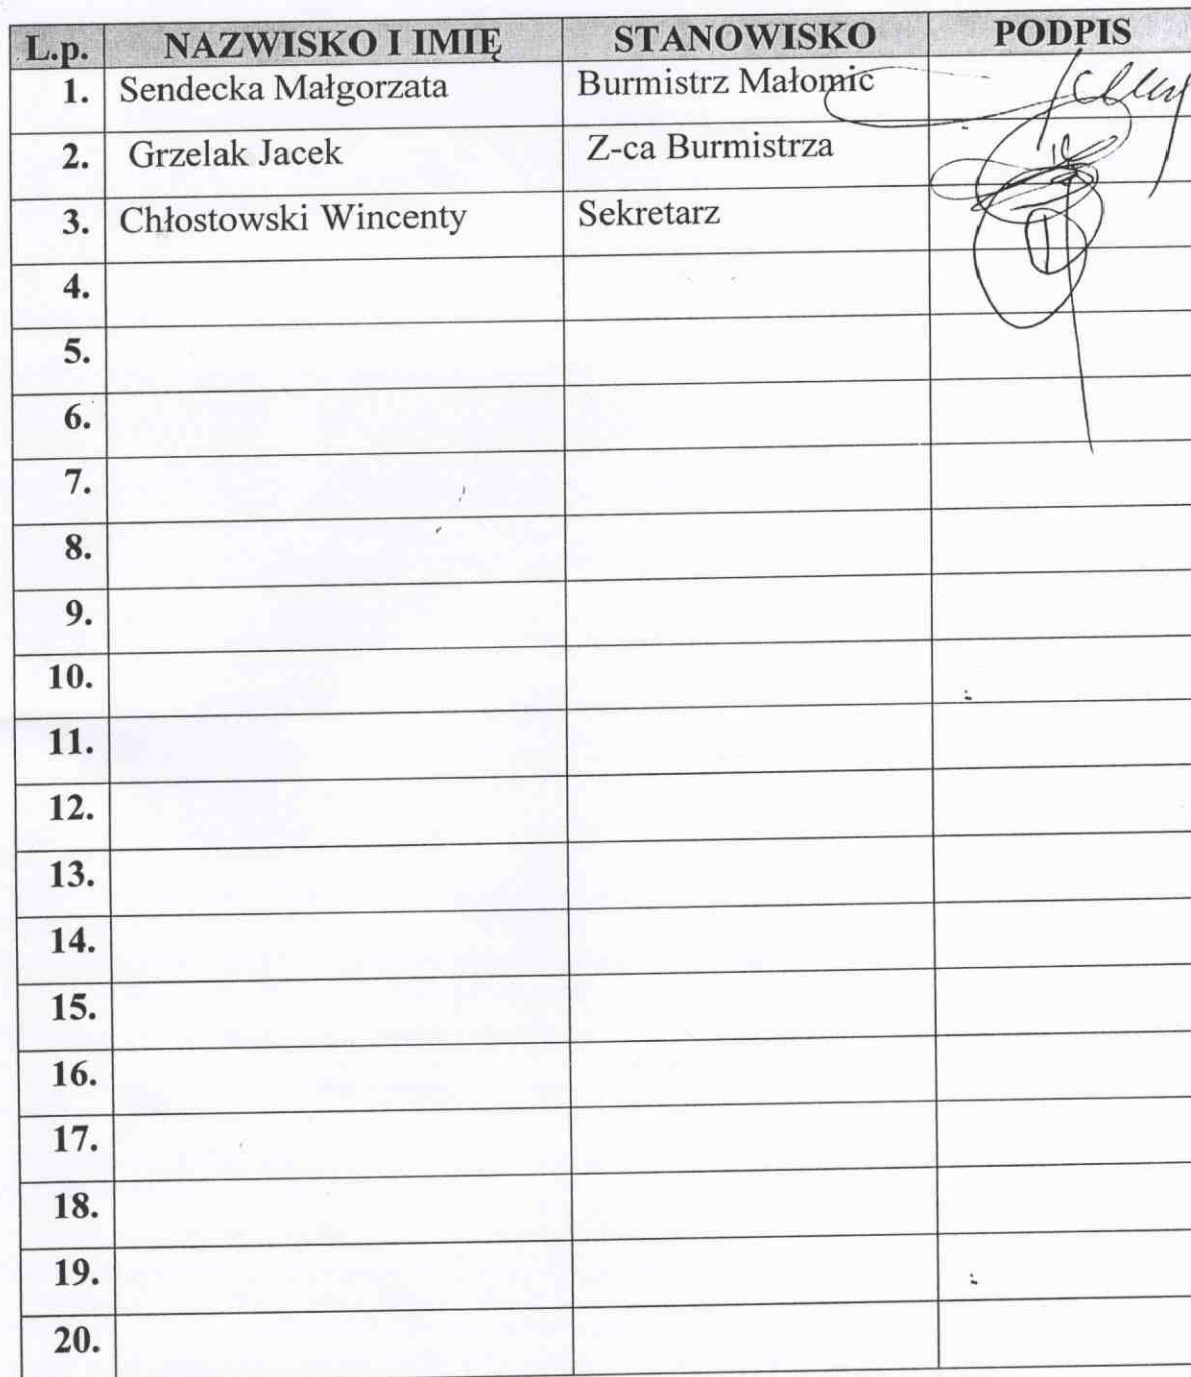 L.p. NAZWISKO I IMIĘ STANOWISKO PODPIS
1. Sendecka Małgorzata Burmistrz Małomic
2. Grzelak Jacek Z-ca Burmistrza
3. Chłostowski Wincenty Sekretarz
4.
5.
6.
7.
8.
9.
10.
11.
12.
13.
14.
15.
16.
17.
18.
19.
20.